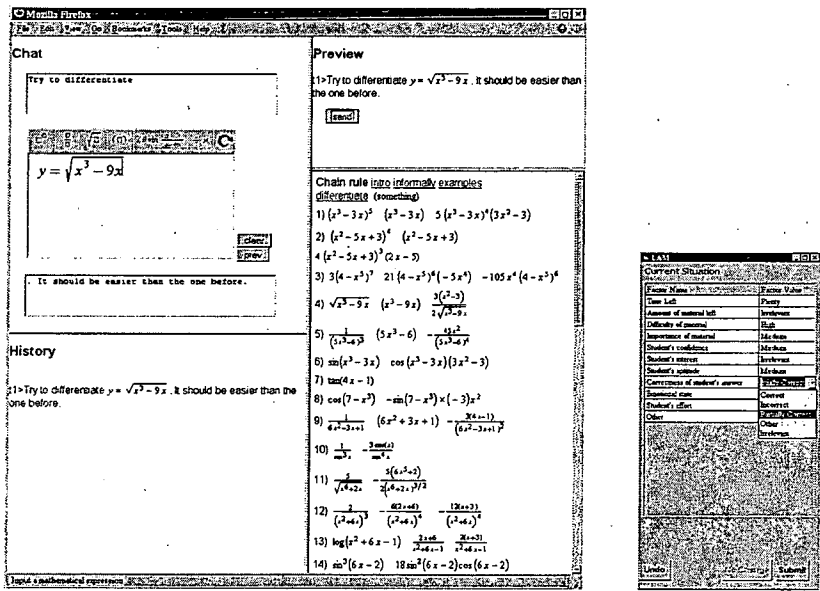 Mozilla Firefox
File Edit View Go Bookmarks Tools Help
Chat
Try to differentiate
y = √(x³ − 9x)
clear
prev
. It should be easier than the one before.
History
t1>Try to differentiate y = √(x³ − 9x) , it should be easier than the
one before.
Input a mathematical expression
Preview
t1>Try to differentiate y = √(x³ − 9x) , it should be easier than
the one before.
send
Chain rule intro informally examples
differentiate (something)
1) (x³ − 3x)⁵ (x³ − 3x) 5(x³ − 3x)⁴(3x² − 3)
2) (x² − 5x + 3)⁴ (x² − 5x + 3)
4(x² − 5x + 3)³(2x − 5)
3) 3(4 − x⁵)⁷ 21(4 − x⁵)⁶(−5x⁴) −105x⁴(4 − x⁵)⁶
4) √(x³ − 9x) (x³ − 9x) 3(x²−3)/(2√(x³−9x))
5) 1/(5x³−6)³ (5x³ − 6) −45x²/(5x³−6)⁴
6) sin(x³ − 3x) cos(x³ − 3x)(3x² − 3)
7) tan(4x − 1)
8) cos(7 − x³) −sin(7 − x³)×(−3)x²
9) 1/(6x²−3x+1) (6x² − 3x + 1) −3(4x−1)/(6x²−3x+1)²
10) 1/sin³x −3cos(x)/sin⁴x
11) 5/√(x⁶+2x) −5(6x⁵+2)/(2(x⁶+2x)^(3/2))
12) 2/(x²+6x)³ −6(2x+6)/(x²+6x)⁴ −12(x+3)/(x²+6x)⁴
13) log(x² + 6x − 1) (2x+6)/(x²+6x−1) 2(x+3)/(x²+6x−1)
14) sin³(6x − 2) 18sin²(6x − 2)cos(6x − 2)
Current Situation
Factor Name Factor Value
Time Left Plenty
Amount of material left Irrelevant
Difficulty of material High
Importance of material Medium
Student's confidence Medium
Student's interest Irrelevant
Student's aptitude Medium
Correctness of student's answer
Correct
Incorrect
Student's effort Partially Correct
Other Other
Irrelevant
Undo Submit